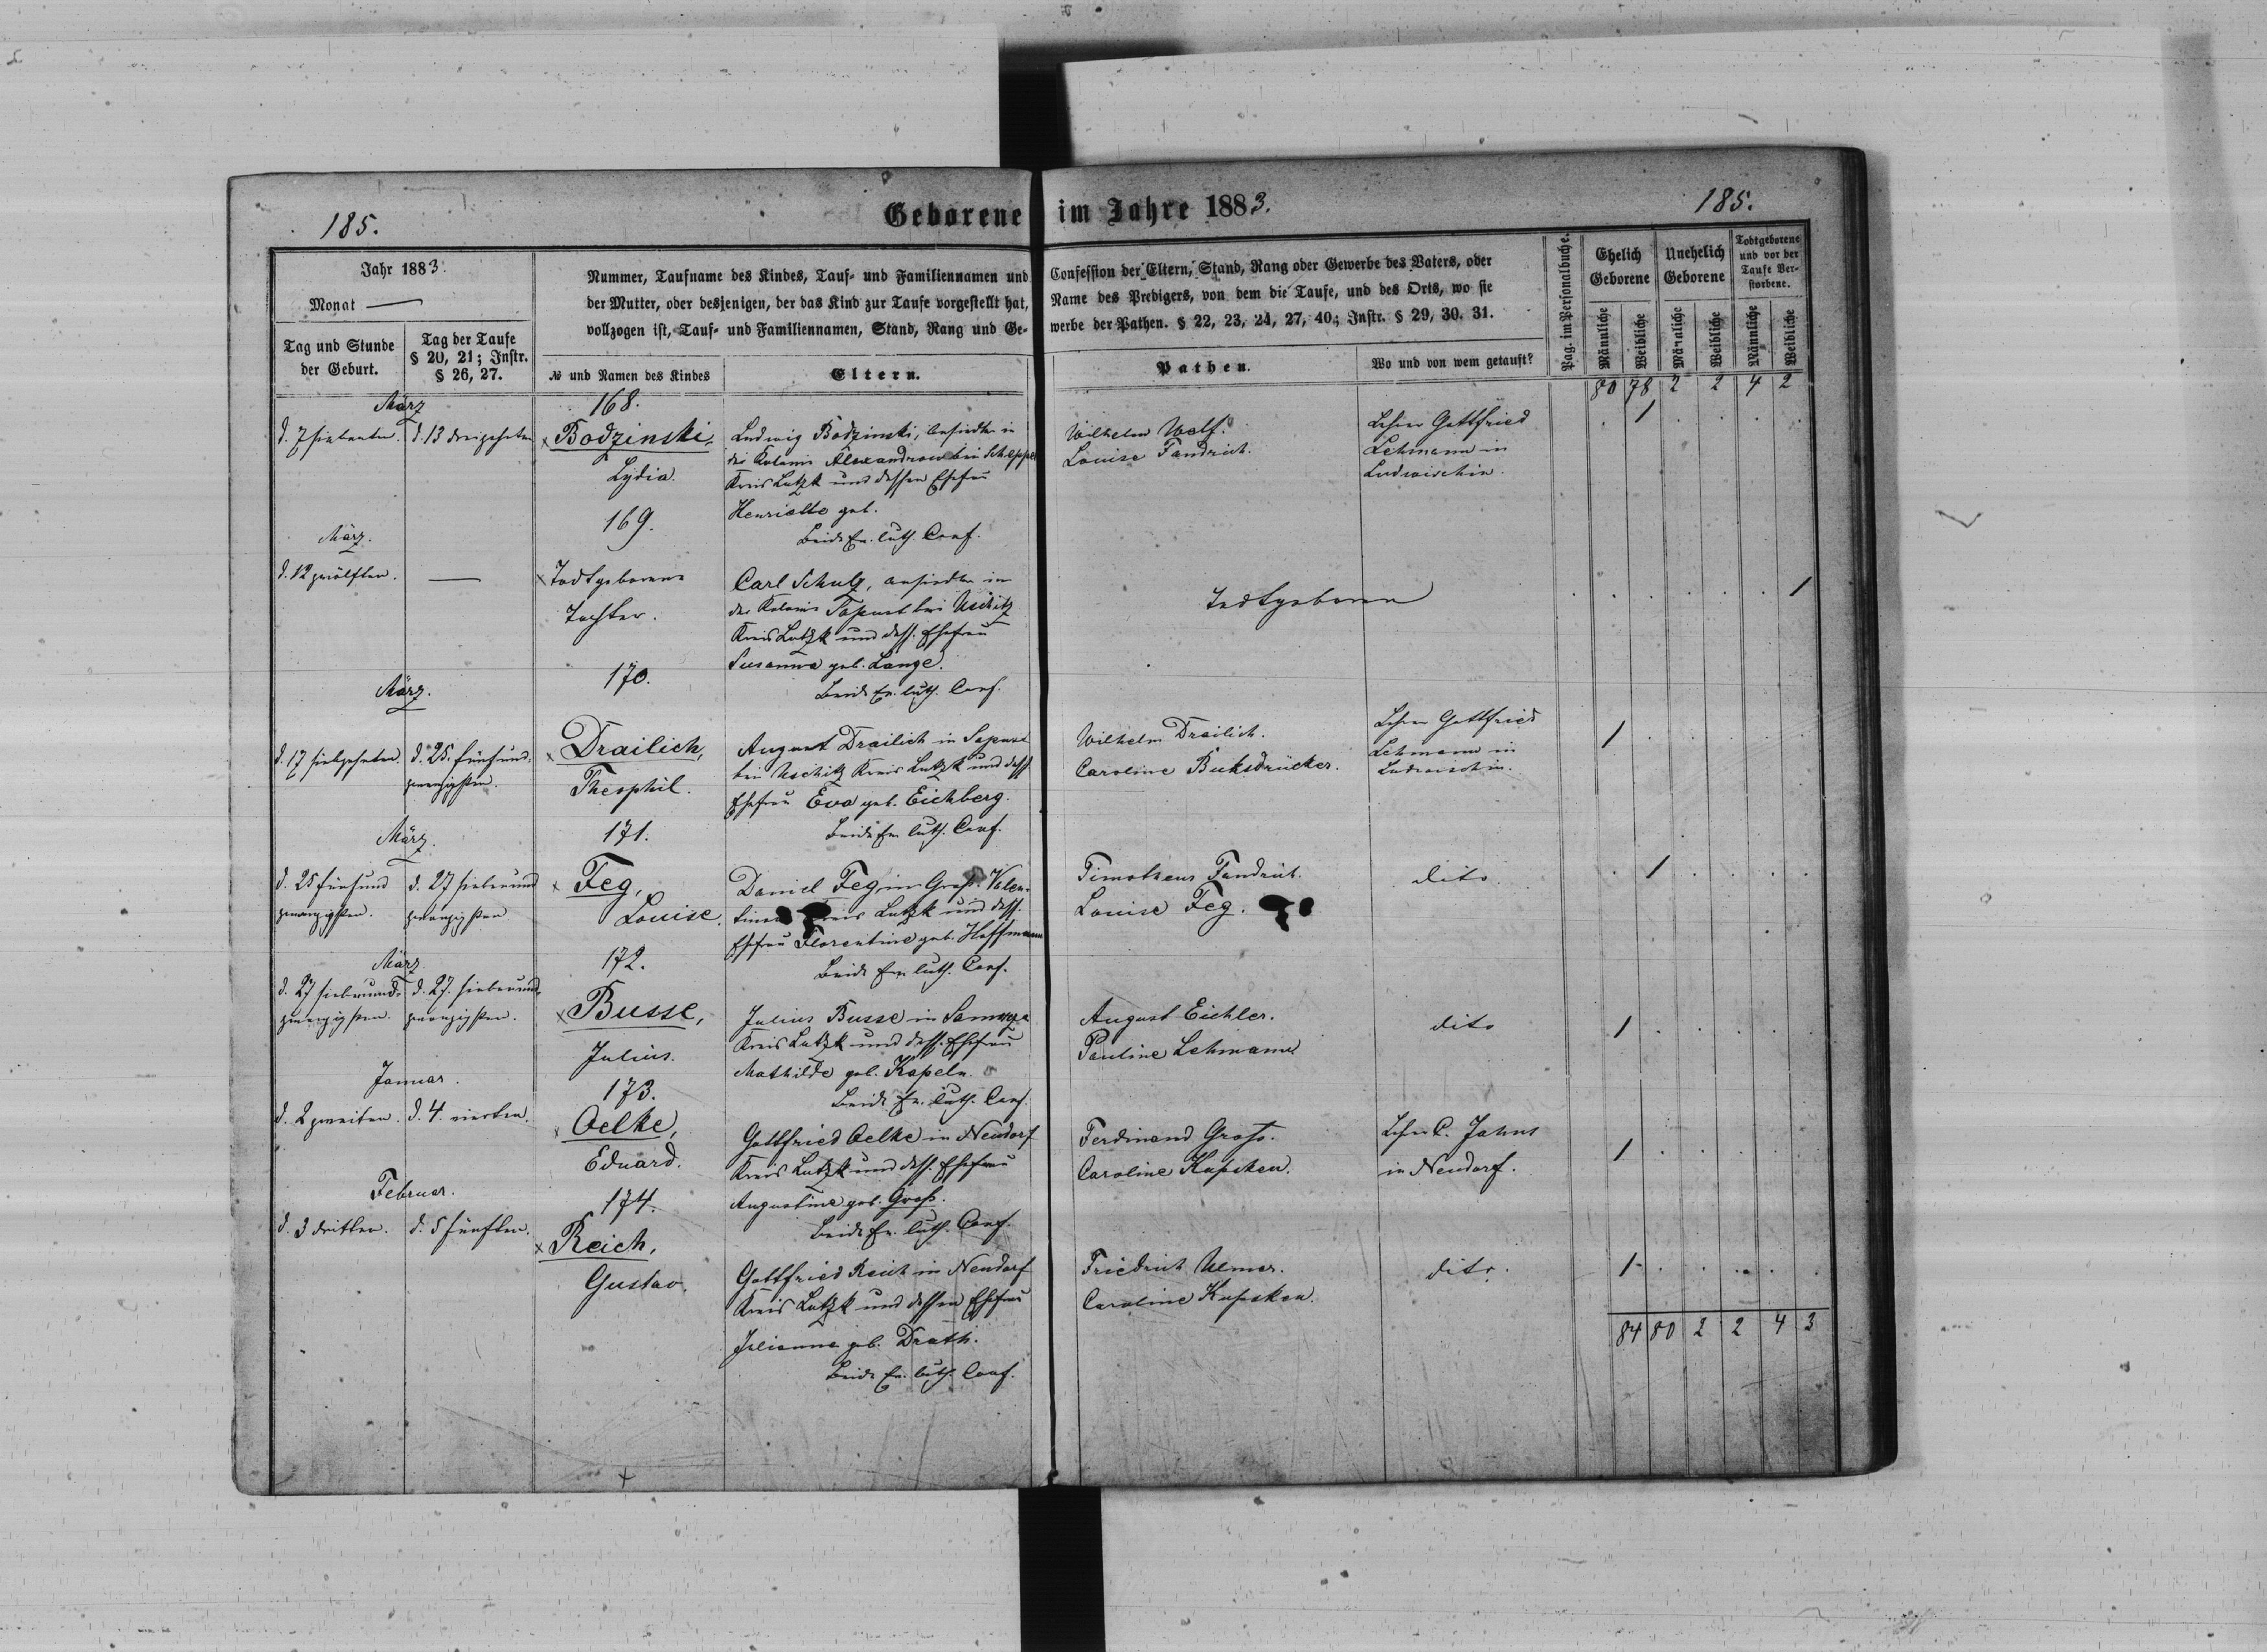 185.
Geborene im Jahre 1883.
185.
Jahr 1883.
Monat —
Tag und Stunde
der Geburt.
Tag der Taufe
§ 20, 21; Instr.
§ 26, 27.
Nummer, Taufname des Kindes, Tauf- und Familiennamen und
der Mutter, oder desjenigen, der das Kind zur Taufe vorgestellt hat,
vollzogen ist, Tauf- und Familiennamen, Stand, Rang und Ge-
№ und Namen des Kindes
Eltern.
Confession der Eltern, Stand, Rang oder Gewerbe des Vaters, oder
Name des Predigers, von dem die Taufe, und des Orts, wo sie
werbe der Pathen. § 22, 23, 24, 27, 40; Instr. § 29, 30. 31.
Pathen.
Wo und von wem getauft?
Pag. im Personalbuche.
Ehelich
Geborene
Unehelich
Geborene
Todtgeborene
und vor der
Taufe Ver-
storbene.
Männliche
Weibliche
Männliche
Weibliche
Männliche
Weibliche
80 78 2 2 4 2
März
d. 7 siebenten.
d. 13 dreizehnten
168.
Bodzinski,
Lydia.
Ludwig Bodzinski, in
der Kolonie Alexandrow bei Scheppel
Kreis Lutzk und dessen Ehefrau
Henriette geb.
Beide Ev. luth. Conf.
Wilhelm Wolf.
Louise Fandrich.
Lehrer Gottfried
Lehmann in
Ludwischin.
1
März.
d. 12 zwölften.
—
169.
Todtgeborene
Tochter.
Carl Schulz, ansiedler in
der Kolonie Sapust bei Uschitz
Kreis Lutzk und dess. Ehefrau
Susanna geb. Lange.
Beide Ev. luth. Conf.
Todtgeboren
1
März.
d. 17 siebzehnten
d. 25. fünfund-
zwanzigsten.
170.
Drailich,
Theophil.
August Drailich in Sapust
bei Uschitz Kreis Lutzk und dess
Ehefrau Eva geb. Eichberg.
Beide Ev. luth. Conf.
Wilhelm Drailich.
Caroline Buksdrücker.
Lehrer Gottfried
Lehmann in
Ludwischin.
1
März.
d. 25 fünfund
zwanzigsten.
d. 27 siebenund
zwanzigsten
171.
Feg,
Louise.
Daniel Feg in Groß. Valen-
Kreis Lutzk und dess.
Ehefrau Florentine geb. Hoffmann
Beide Ev. luth. Conf.
Timotheus Fandrich.
Louise Feg.
dito
1
März
d. 27 siebenund-
zwanzigsten.
d. 27. siebenund-
zwanzigsten.
172.
Busse,
Julius.
Julius Busse in
Kreis Lutzk und dess. Ehefrau
Mathilde geb. Kapeln.
Beide Ev. luth. Conf.
August Eichler.
Pauline Lehmann.
dito
1
Januar.
d. 2 zweiten.
d. 4. vierten.
173.
Oelke,
Eduard.
Gottfried Oelke in Neudorf
Kreis Lutzk und dess. Ehefrau
Augustine geb. Groß.
Beide Ev. luth. Conf.
Ferdinand Groß.
Caroline Kapsken.
Lehrer C. Jahns
in Neudorf.
1
Februar.
d. 3 dritten.
d. 5 fünften.
174.
Reich,
Gustav.
Gottfried Reich in Neudorf
Kreis Lutzk und dessen Ehefrau
Julianna geb. Drath.
Beide Ev. luth. Conf.
Friedrich Ulmer.
Caroline Kapsken.
dito.
1
84 80 2 2 4 3